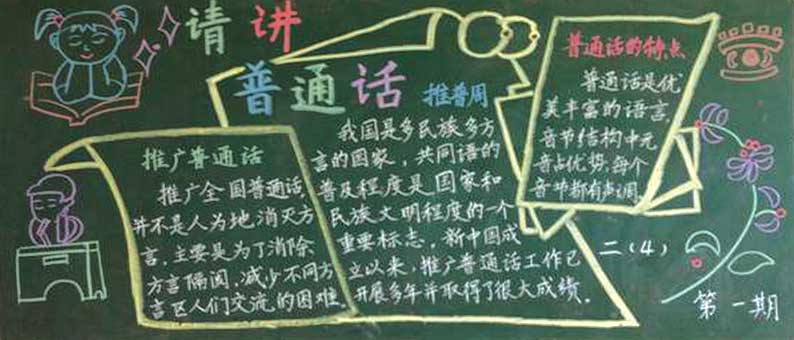 请讲
普通话
推普周
推广普通话
推广全国普通话,
并不是人为地消灭方
言,主要是为了消除
方言隔阂,减少不同方
言区人们交流的困难。
我国是多民族多方
言的国家,共同语的
普及程度是国家和
民族文明程度的一个
重要标志。新中国成
立以来,推广普通话工作已
开展多年并取得了很大成绩。
普通话的特点
普通话是优
美丰富的语言,
音节结构中元
音占优势,每个
音节都有声调。
二(4)
第一期